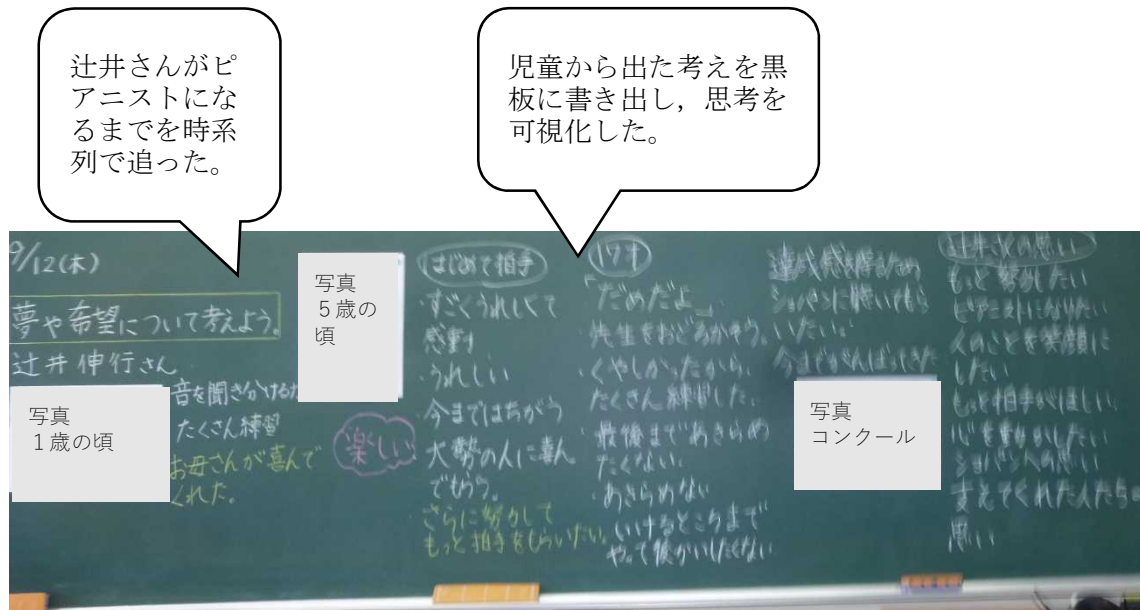 辻井さんがピ
アニストにな
るまでを時系
列で追った。
児童から出た考えを黒
板に書き出し，思考を
可視化した。
9/12(木)
夢や希望について考えよう。
辻井伸行さん
写真
１歳の頃
音を聞き分ける
たくさん練習
お母さんが喜んで
くれた。
写真
５歳の
頃
楽しい
はじめて拍手
・すごくうれしくて
感動
・うれしい
・今まではちがう
大勢の人に喜ん
でもらう。
さらに努力して
もっと拍手をもらいたい。
17才
「だめだよ」
・先生をおどろかそう。
・くやしかったから、
たくさん練習した。
・最後まであきらめ
たくない。
・あきらめない
いけるところまで
やって後かいしたくない
達成感を得るため
ショパンに
いたい。
今までがんばってきた
写真
コンクール
辻井さんの思い
もっと努力したい
ピアニストになりたい
人のことを笑顔に
したい
もっと拍手がほしい
心を動かしたい
ショパンへの思い
支えてくれた人たちの
思い